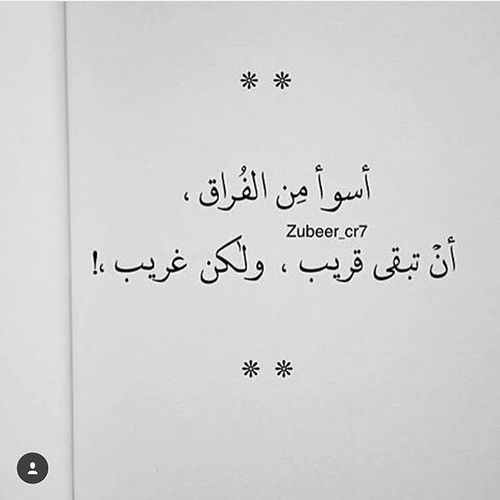 ❊ ❊
أسوأ مِن الفُراق ،
Zubeer_cr7
أنْ تبقى قريب ، ولٰكن غريب ،!
❊ ❊